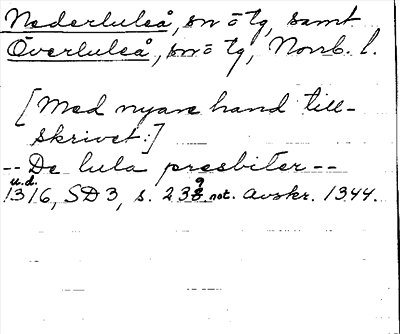 Nederluleå, sn o tg, samt
Överluleå, sn o tg, Norrb. l.
[Med nyare hand till-
skrivet:]
-- De lula presbiter --
u.d.
1316, SD 3, s. 239 not. Avskr. 1344.